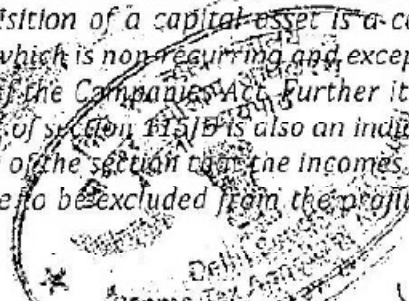 isition of a capital asset is a c
which is non-recurring and excep
of the Companies Act. Further it
of section 115JB is also an indi
of the section that the incomes
e to be excluded from the profit
Delhi
Income Tax